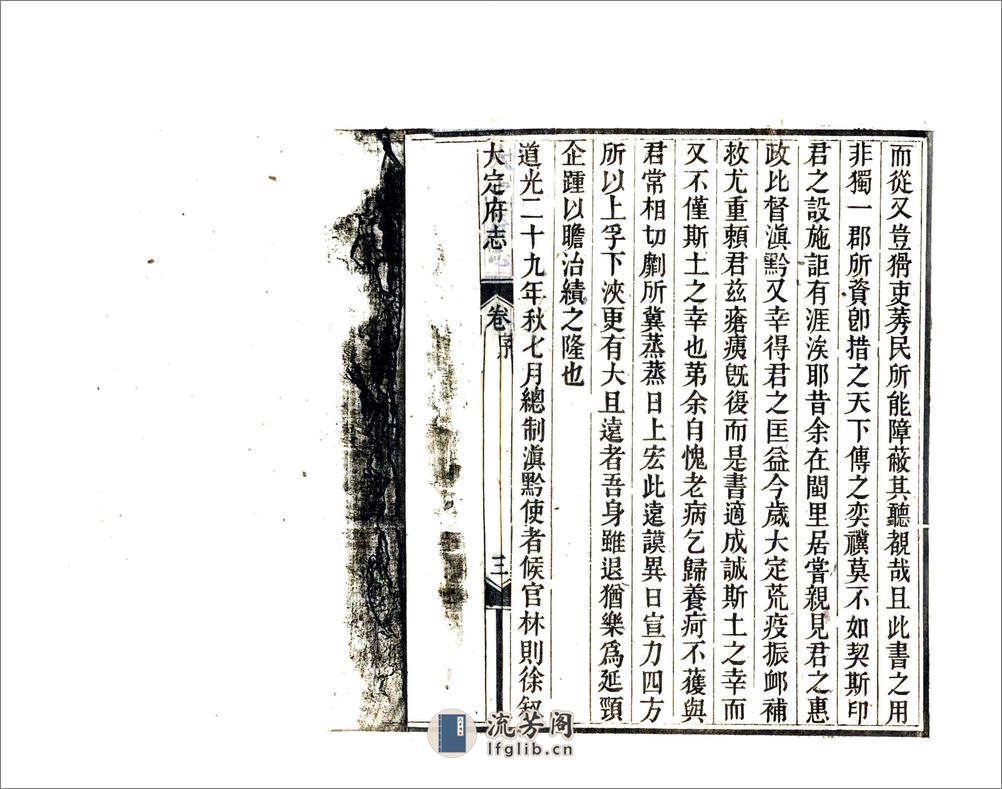 而從又豈猾吏莠民所能障蔽其聽覩哉且此書之用
非獨一郡所資卽措之天下傳之奕禩莫不如契斯印
君之設施詎有涯涘耶昔余在閩里居嘗親見君之惠
政比督滇黔又幸得君之匡益今歲大定荒疫振卹補
救尤重賴君茲瘡痍旣復而是書適成誠斯土之幸而
又不僅斯土之幸也第余自愧老病乞歸養疴不獲與
君常相切劘所冀蒸蒸日上宏此遠謨異日宣力四方
所以上孚下浹更有大且遠者吾身雖退猶樂爲延頸
企踵以瞻治績之隆也
道光二十九年秋七月總制滇黔使者候官林則徐敘
大定府志 卷序 三
流芳阁
lfglib.cn